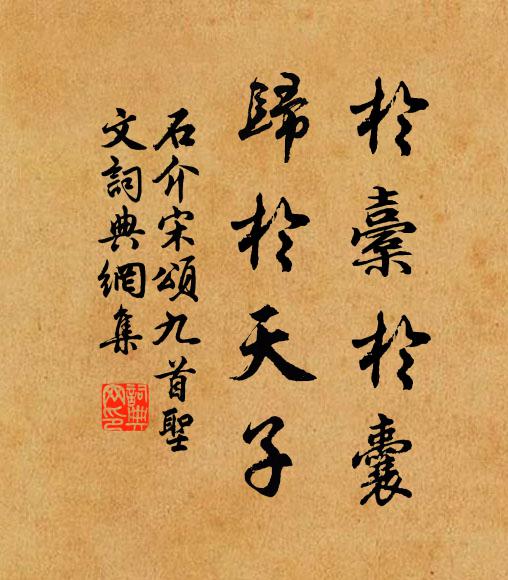 於橐於囊
歸於天子
石介宋頌九首聖
文詞典網集
詞典
网印